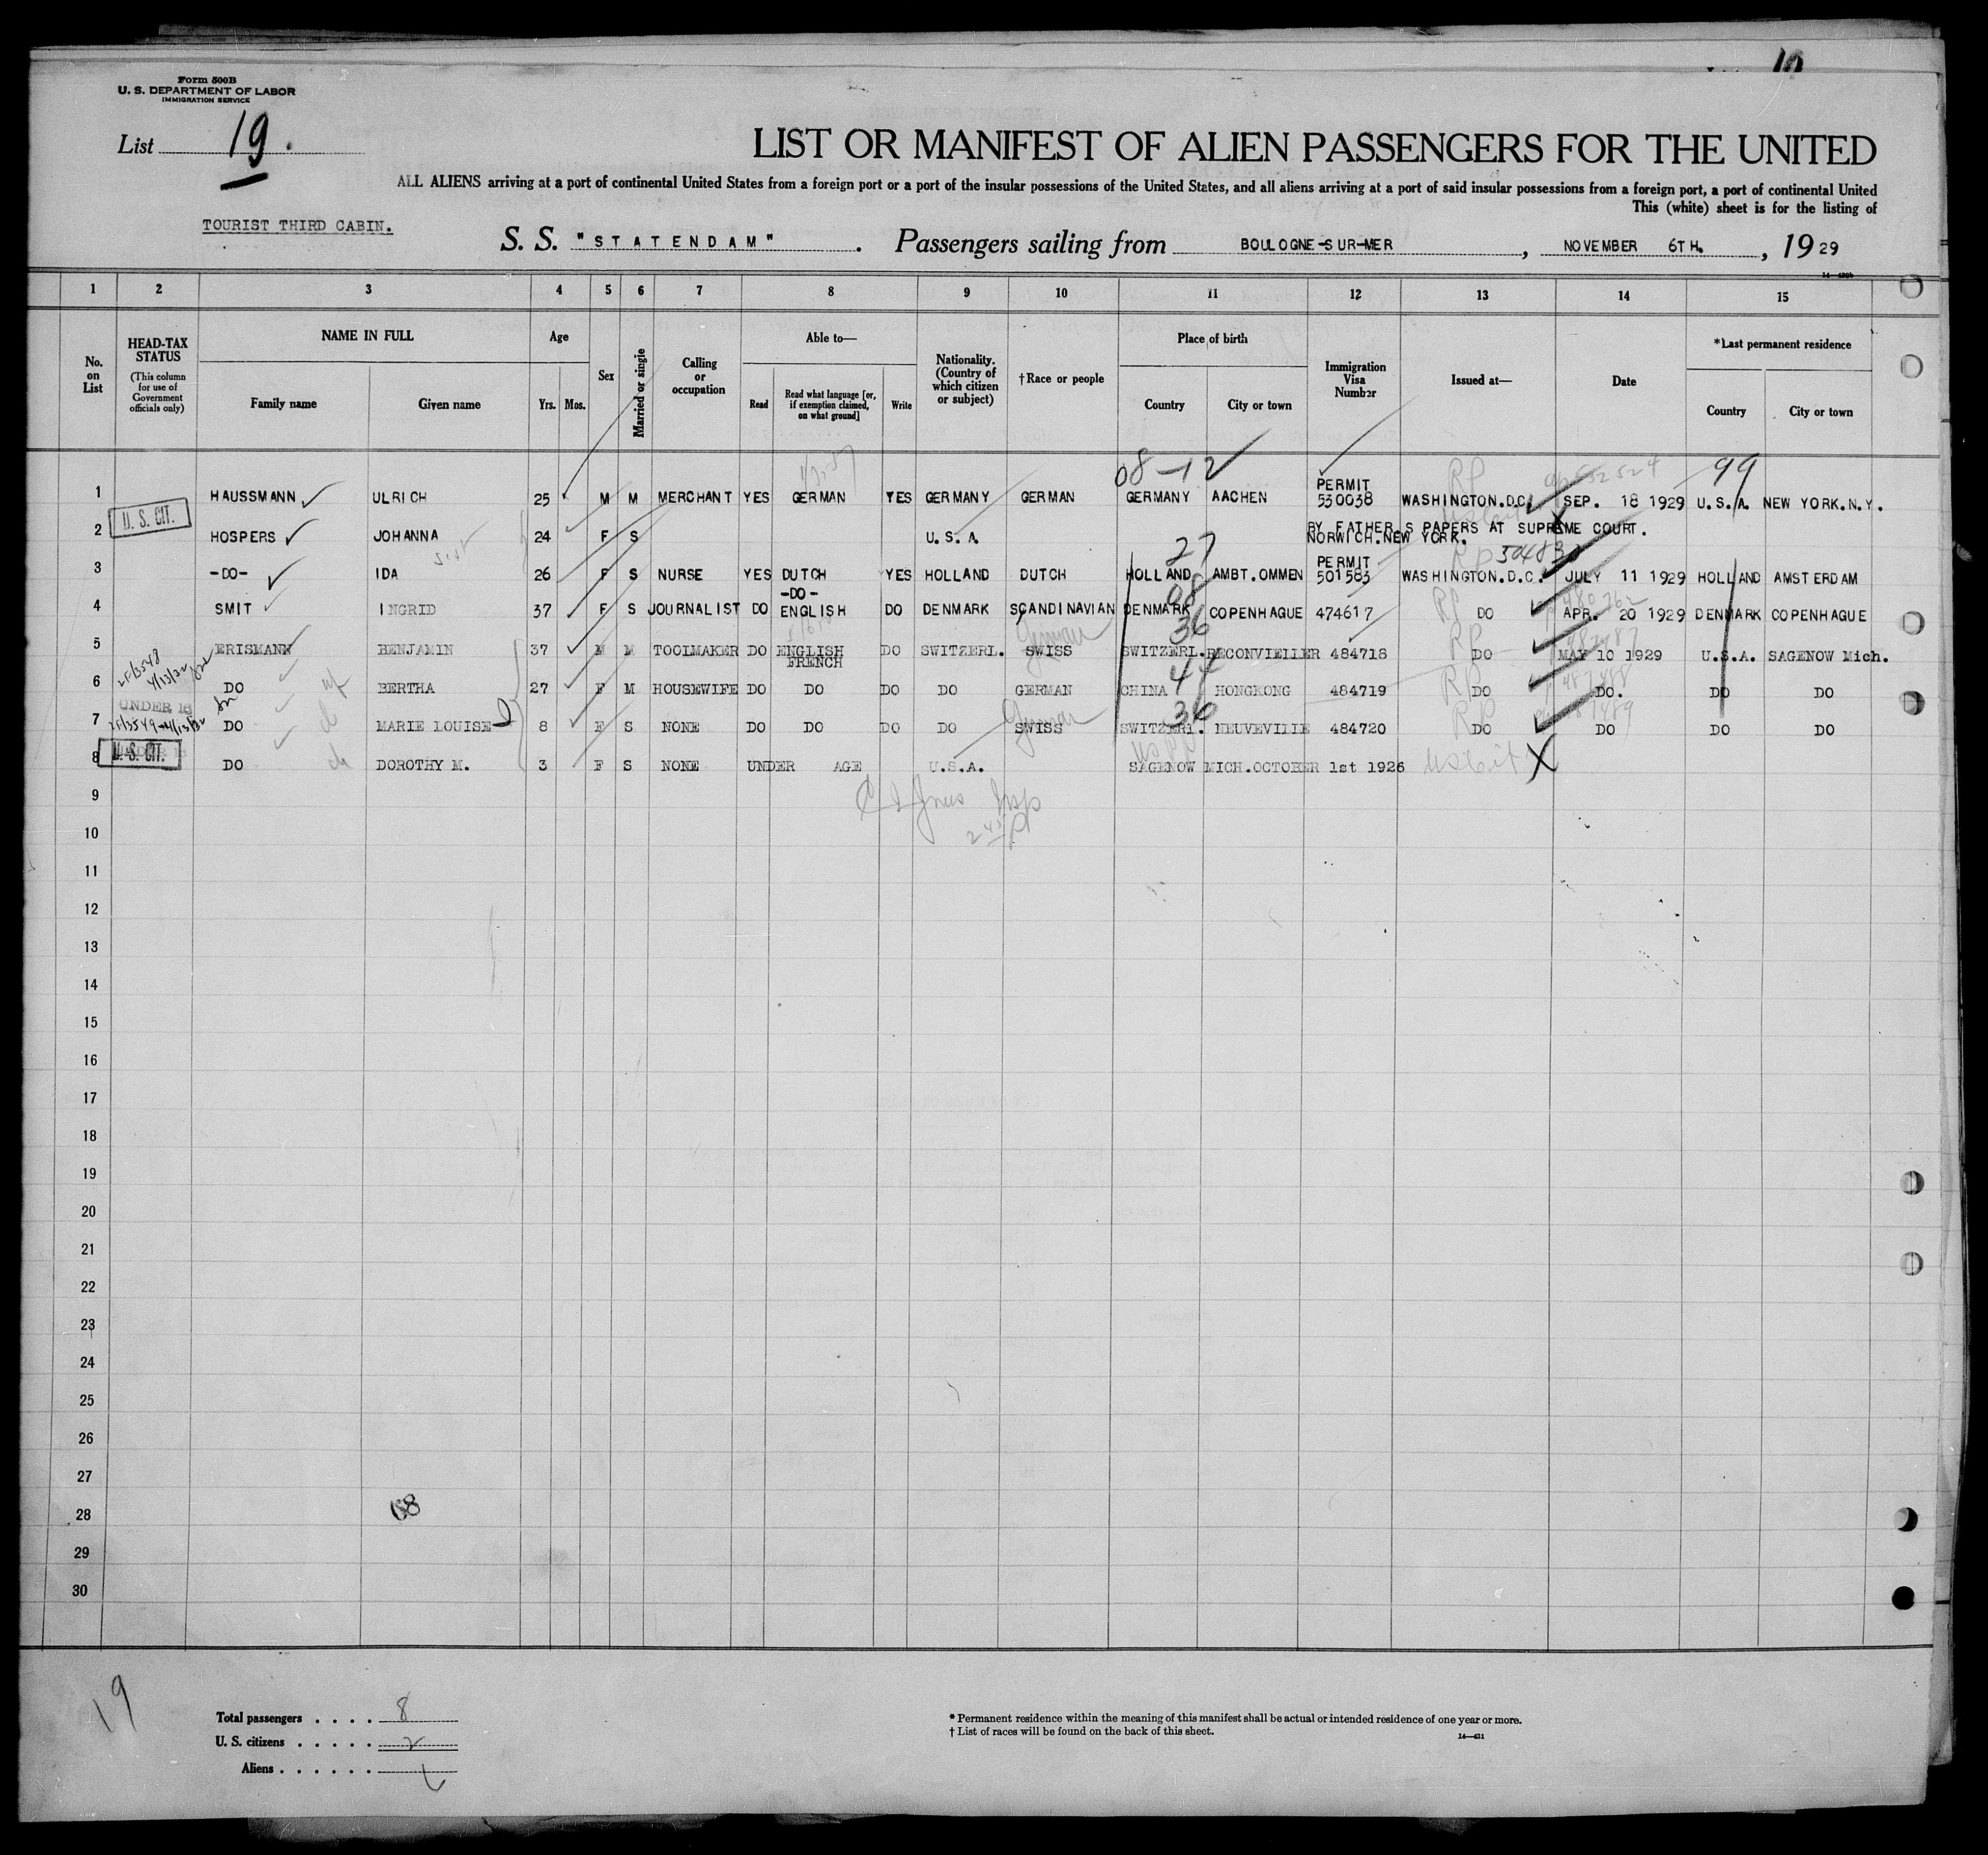 Form 500B
U. S. DEPARTMENT OF LABOR
IMMIGRATION SERVICE
List 19.
LIST OR MANIFEST OF ALIEN PASSENGERS FOR THE UNITED
ALL ALIENS arriving at a port of continental United States from a foreign port or a port of the insular possessions of the United States, and all aliens arriving at a port of said insular possessions from a foreign port, a port of continental United
This (white) sheet is for the listing of
TOURIST THIRD CABIN.
S. S. "STATENDAM" . Passengers sailing from BOULOGNE-SUR-MER , NOVEMBER 6TH. , 1929
1 2 3 4 5 6 7 8 9 10 11 12 13 14 15
No. on List
HEAD-TAX STATUS (This column for use of Government officials only)
NAME IN FULL
Family name Given name
Age
Yrs. Mos.
Sex
Married or single
Calling or occupation
Able to—
Read
Read what language [or, if exemption claimed, on what ground]
Write
Nationality. (Country of which citizen or subject)
†Race or people
Place of birth
Country City or town
Immigration Visa Number
Issued at—
Date
*Last permanent residence
Country City or town
08-12 99
1 HAUSSMANN ULRICH 25 M M MERCHANT YES GERMAN YES GERMANY GERMAN GERMANY AACHEN PERMIT 530038 WASHINGTON.D.C. SEP. 18 1929 U.S.A. NEW YORK.N.Y.
2 U. S. CIT. HOSPERS JOHANNA 24 F S U.S.A. BY FATHER,S PAPERS AT SUPREME COURT.
NORWICH.NEW YORK.
27
3 -DO- IDA 26 F S NURSE YES DUTCH YES HOLLAND DUTCH HOLLAND AMBT.OMMEN PERMIT 501583 WASHINGTON.D.C. JULY 11 1929 HOLLAND AMSTERDAM
08
4 SMIT INGRID 37 F S JOURNALIST DO -DO- ENGLISH DO DENMARK SCANDINAVIAN DENMARK COPENHAGUE 474617 RP DO APR. 20 1929 DENMARK COPENHAGUE
36
5 ERISMANN BENJAMIN 37 M M TOOLMAKER DO ENGLISH FRENCH DO SWITZERL. SWISS German SWITZERL. RECONVIELLER 484718 RP DO MAY 10 1929 U.S.A. SAGENOW Mich.
44
6 DO wf BERTHA 27 F M HOUSEWIFE DO DO DO DO GERMAN CHINA HONGKONG 484719 RP DO DO. DO DO
UNDER 16
36
7 DO d MARIE LOUISE 8 F S NONE DO DO DO DO SWISS German SWITZERL. NEUVEVILLE 484720 RP DO DO DO DO
8 U. S. CIT. DO d DOROTHY M. 3 F S NONE UNDER AGE U.S.A. SAGENOW MICH.OCTOBER 1st 1926 US Cit X
9
10
11
12
13
14
15
16
17
18
19
20
21
22
23
24
25
26
27
28
29
30
68
19
Total passengers . . . . 8
U. S. citizens . . . . . 2
Aliens . . . . . .
* Permanent residence within the meaning of this manifest shall be actual or intended residence of one year or more.
† List of races will be found on the back of this sheet.
14—431